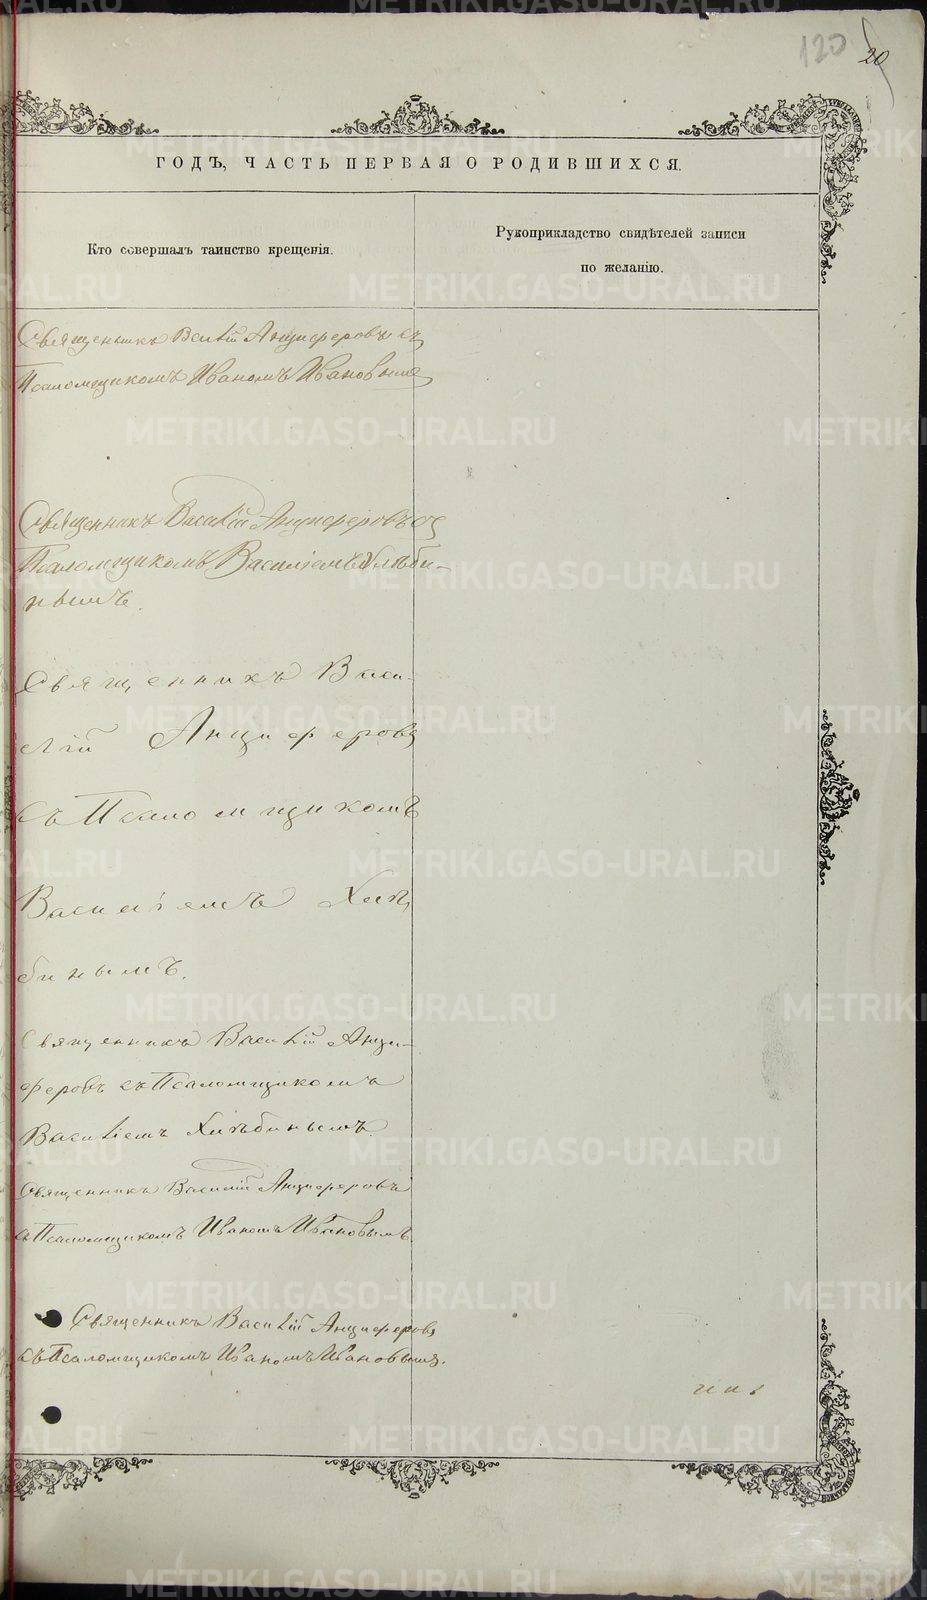 120 20
ГОДЪ, ЧАСТЬ ПЕРВАЯ О РОДИВШИХСЯ.
Кто совершалъ таинство крещенія.
Рукоприкладство свидѣтелей записи
по желанію.
Священникъ Василій Анциферовъ съ
Псаломщикомъ Иваномъ Ивановымъ
Священникъ Василій Анциферовъ съ
Псаломщикомъ Василіемъ Хлѣби-
нымъ.
Священникъ Васи-
лій Анциферовъ
съ Псаломщикомъ
Василіемъ Хлѣ
бинымъ.
Священникъ Василій Анци-
феровъ съ Псаломщикомъ
Василіемъ Хлѣбинымъ.
Священникъ Василій Анциферовъ
съ Псаломщикомъ Иваномъ Ивановымъ.
Священникъ Василій Анциферовъ
съ Псаломщикомъ Иваномъ Ивановымъ.
METRIKI.GASO-URAL.RU